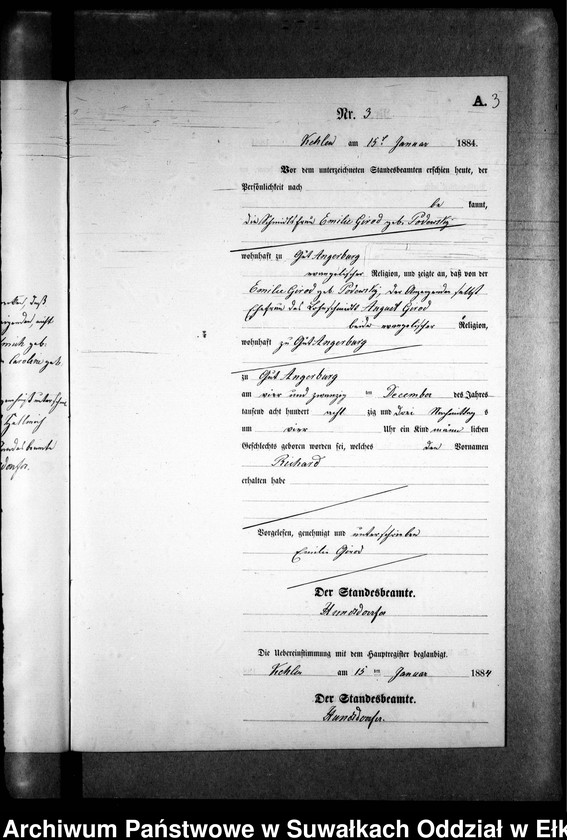 A. 3
Nr. 3
Kehlen am 15t Januar 1884.
Vor dem unterzeichneten Standesbeamten erschien heute, der
Persönlichkeit nach
be kannt,
die Schmidtsfrau Emilie Girod geb. Podewsky
wohnhaft zu Gut Angerburg
evangelischer Religion, und zeigte an, daß von der
Emilie Girod geb. Podewsky, der Anzeigenden selbst
Ehefrau des August Girod
beide evangelischer Religion,
wohnhaft zu Gut Angerburg
zu Gut Angerburg
am vier und zwanzig ten December des Jahres
tausend acht hundert acht zig und drei Nachmittag s
um vier Uhr ein Kind männ lichen
Geschlechts geboren worden sei, welches den Vornamen
Richard
erhalten habe
Vorgelesen, genehmigt und unterschrieben
Emilie Girod
Der Standesbeamte.
Hunsdorfer
Die Uebereinstimmung mit dem Hauptregister beglaubigt.
Kehlen am 15 ten Januar 1884
Der Standesbeamte.
Hunsdorfer.
Archiwum Państwowe w Suwałkach Oddział w Ełk